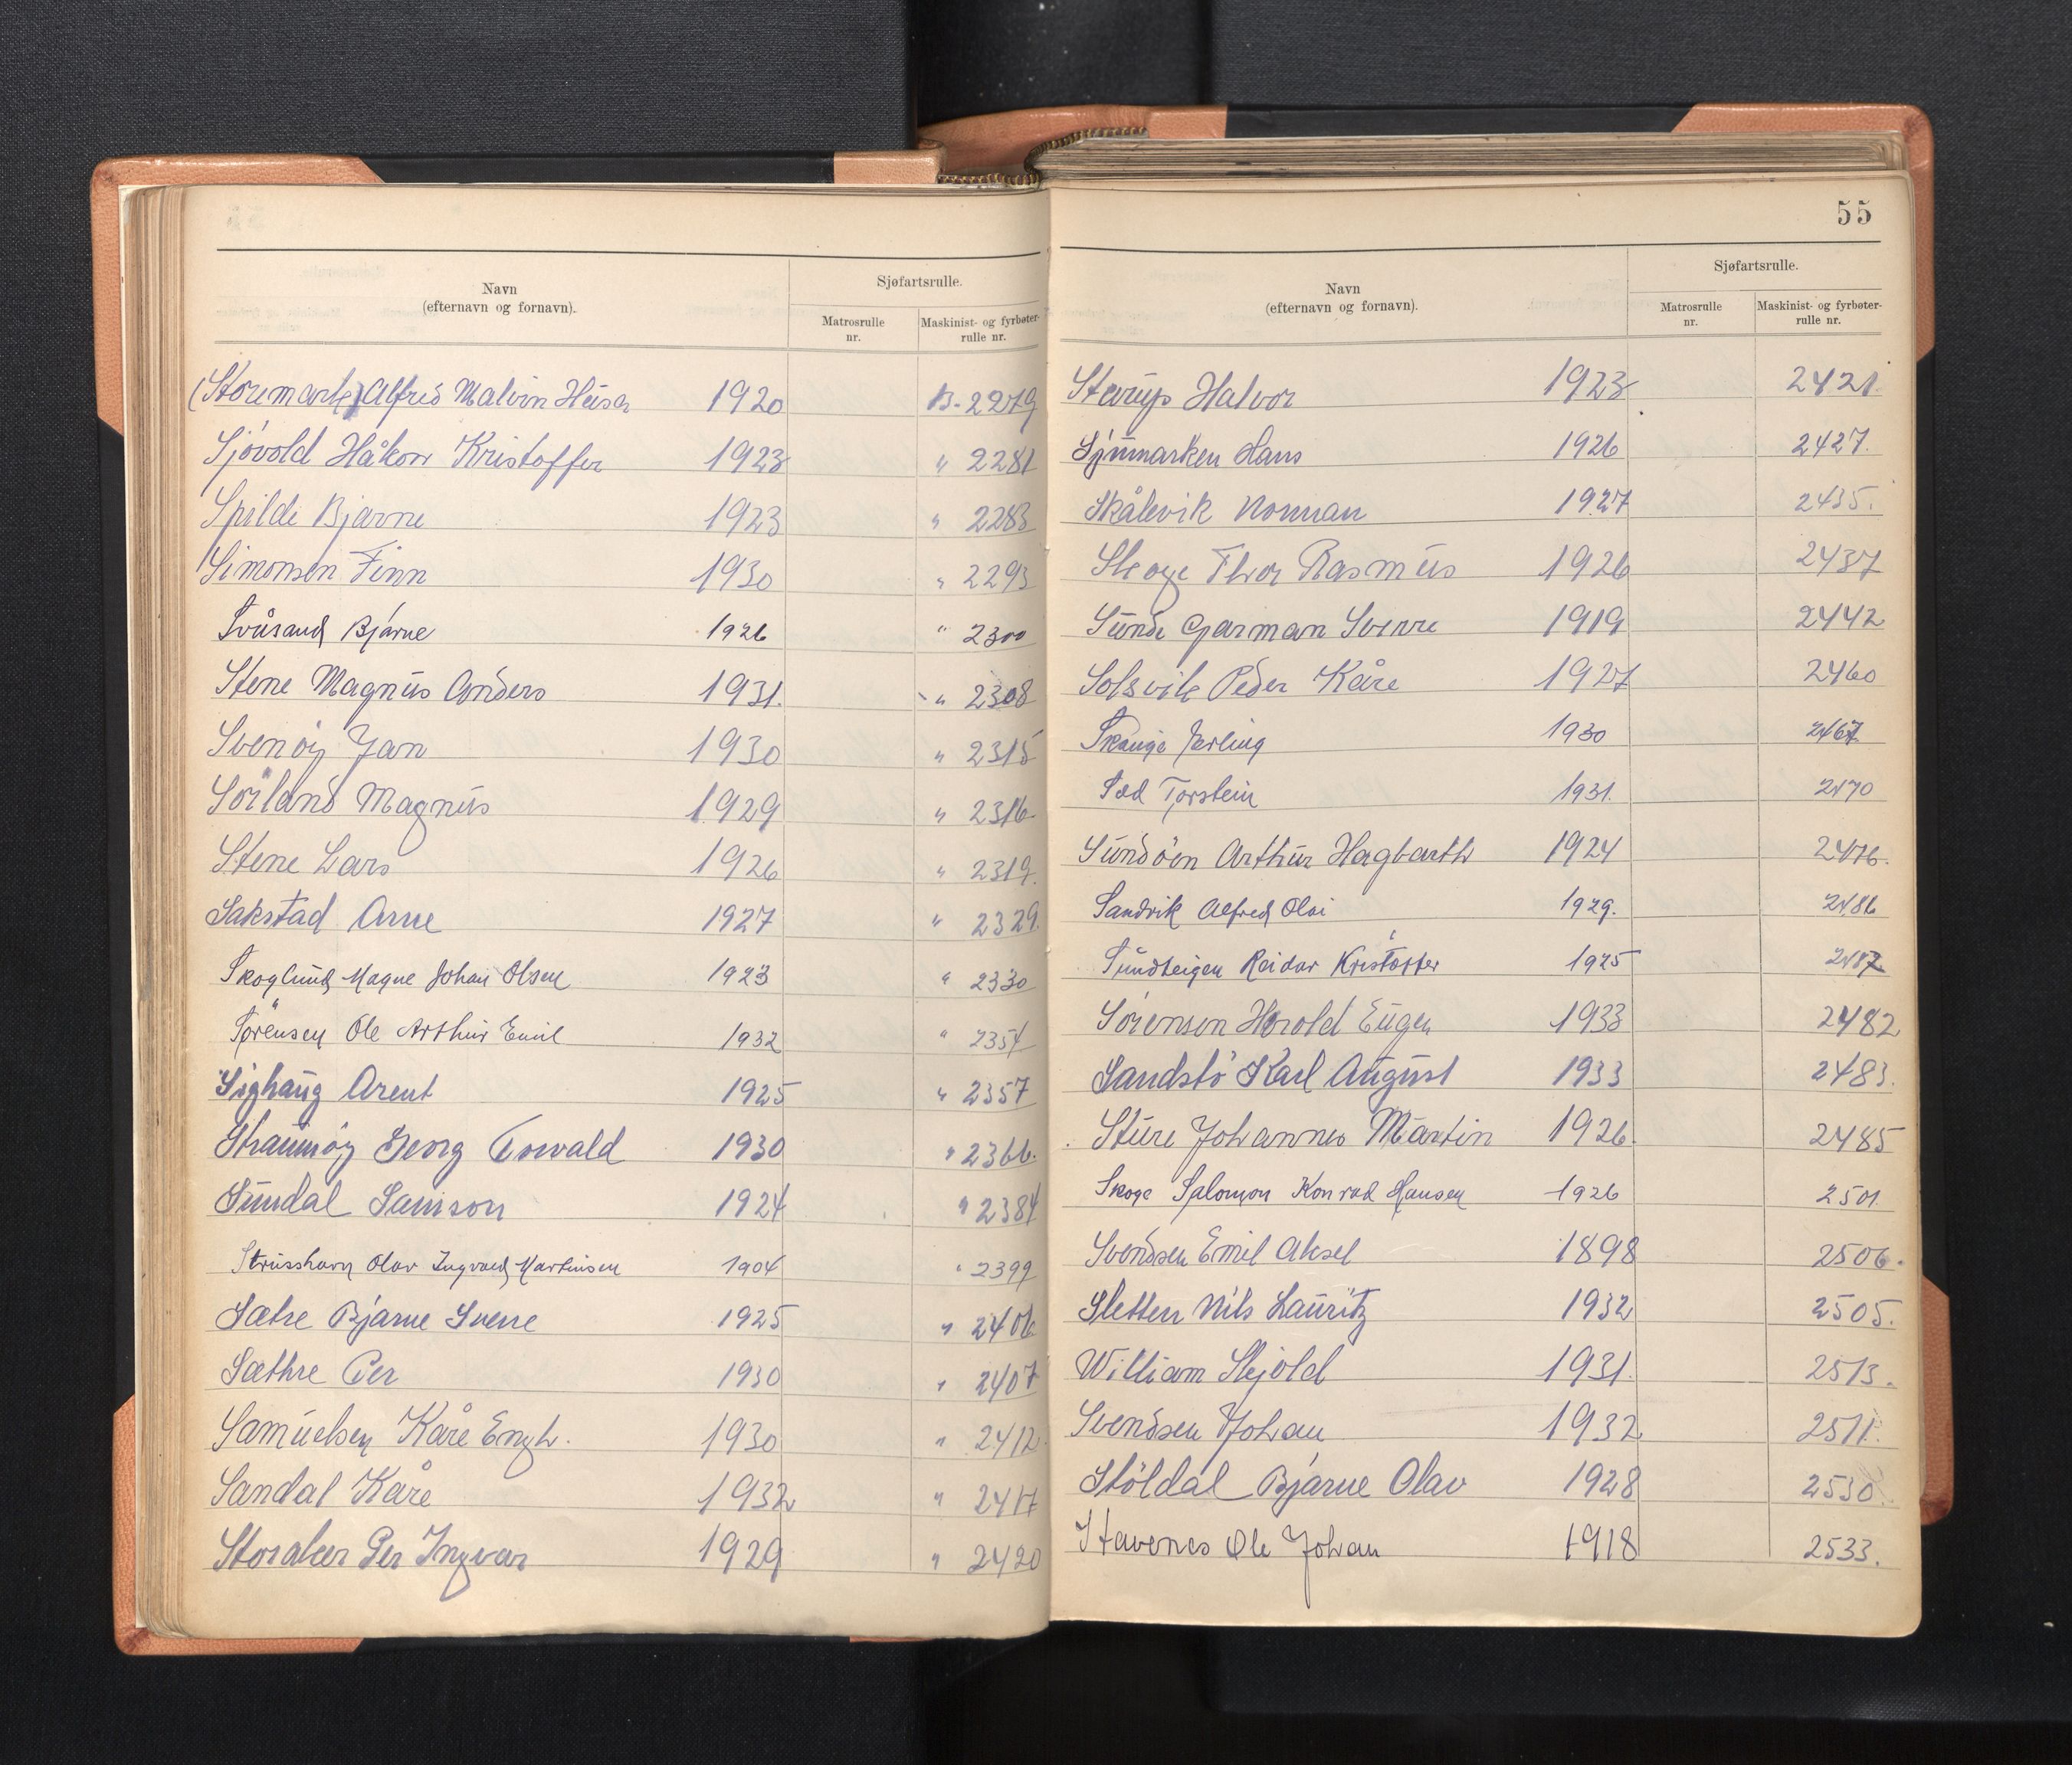 Navn
(efternavn og fornavn).
Sjøfartsrulle.
Matrosrulle
nr.
Maskinist- og fyrbøter-
rulle nr.
(Storemark) Alfred Malvin Heisa 1920 B. 2279
Sjövold Håkon Kristoffer 1923 " 2281
Spilde Bjarne 1923 " 2283
Simonsen Finn 1930 " 2293
Svåsand Bjarne 1926 " 2300
Stene Magnus Anders 1931. " 2308
Svenöy Jan 1930 " 2315
Sörland Magnus 1929 " 2316
Stene Lars 1926 " 2319.
Sakstad Arne 1927 " 2329.
Skoglund Magne Johan Olsen 1923 " 2330
Sörensen Ole Arthur Emil 1932 " 2354
Sighaug Arent 1925 " 2357
Straumöy Georg Oswald 1930 " 2366.
Sundal Samson 1924 " 2384
Strusshavn Olav Ingvald Martinsen 1904 " 2399
Sætre Bjarne Sverre 1925 " 2406
Sæthre Per 1930 " 2407
Samuelsen Kåre Engh. 1930 " 2412
Sandal Kåre 1932 " 2417
Storaker Per Ingvar 1929 " 2420
55
Navn
(efternavn og fornavn).
Sjøfartsrulle.
Matrosrulle
nr.
Maskinist- og fyrbøter-
rulle nr.
Starup Halvor 1923 2421.
Hans 1926 2427.
Skålevik Norman 1927 2435.
Skoge Thor Rasmus 1926 2437
Sunde Garman Sverre 1919 2442
Solsvik Peder Kåre 1927 2460
Skauge Jerling 1930 2467
Sæd Torstein 1931. 2470
Sundöen Arthur Hagbarth 1924 2476.
Sandvik Alfred Olai 1929. 2486
Sundteigen Reidar Kristoffer 1925 2487
Sörensen Harold Eugen 1933 2482
Sandstö Karl August 1933 2483.
Sture Johannes Martin 1926. 2485
Skoge Salomon Konrad Hansen 1926 2501.
Svendsen Emil Aksel 1898 2506.
Sletten Nils Lauritz 1932 2505.
William Skjold 1931. 2513.
Svendsen Johan 1932 2511.
Stöldal Bjarne Olav 1928 2530.
Stavenes Ole Johan 1918 2533.